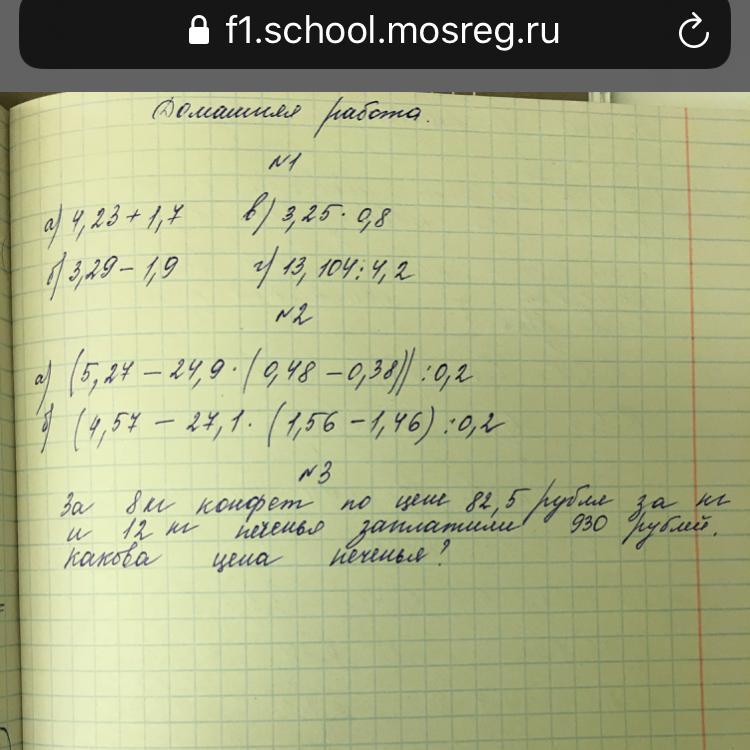 f1.school.mosreg.ru
Домашняя работа.
N1
а) 4,23 + 1,7 в) 3,25 · 0,8
б) 3,29 - 1,9 г) 13,104 : 4,2
N2
а) (5,27 - 24,9 · (0,48 - 0,38)) : 0,2
б) (4,57 - 27,1 · (1,56 - 1,46) : 0,2
N3
За 8 кг конфет по цене 82,5 рубля за кг
и 12 кг печенья заплатили 930 рублей.
какова цена печенья?